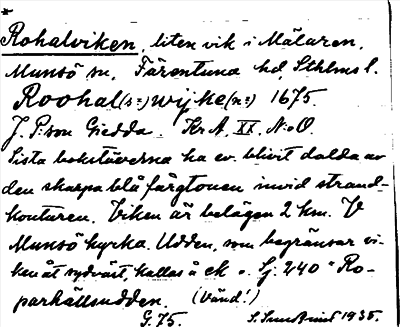 Rohalviken, liten vik i Mälaren,
Munsö sn, Färentuna hd, Sthlms l.
Roohal(s=)wijke(n=) 1675.
J. P:son Giedda. Kr A. XX. N:o O.
Sista bokstäverna ha ev. blivit dolda av
den skarpa blå färgtonen invid strand-
konturen. Viken är belägen 2 km. V
Munsö kyrka. Udden, som begränsar vi-
ken åt sydväst, kallas å ek. Gj. 240 "Ro-
parhällsudden. (Vänd!)
G. 75. 1935.